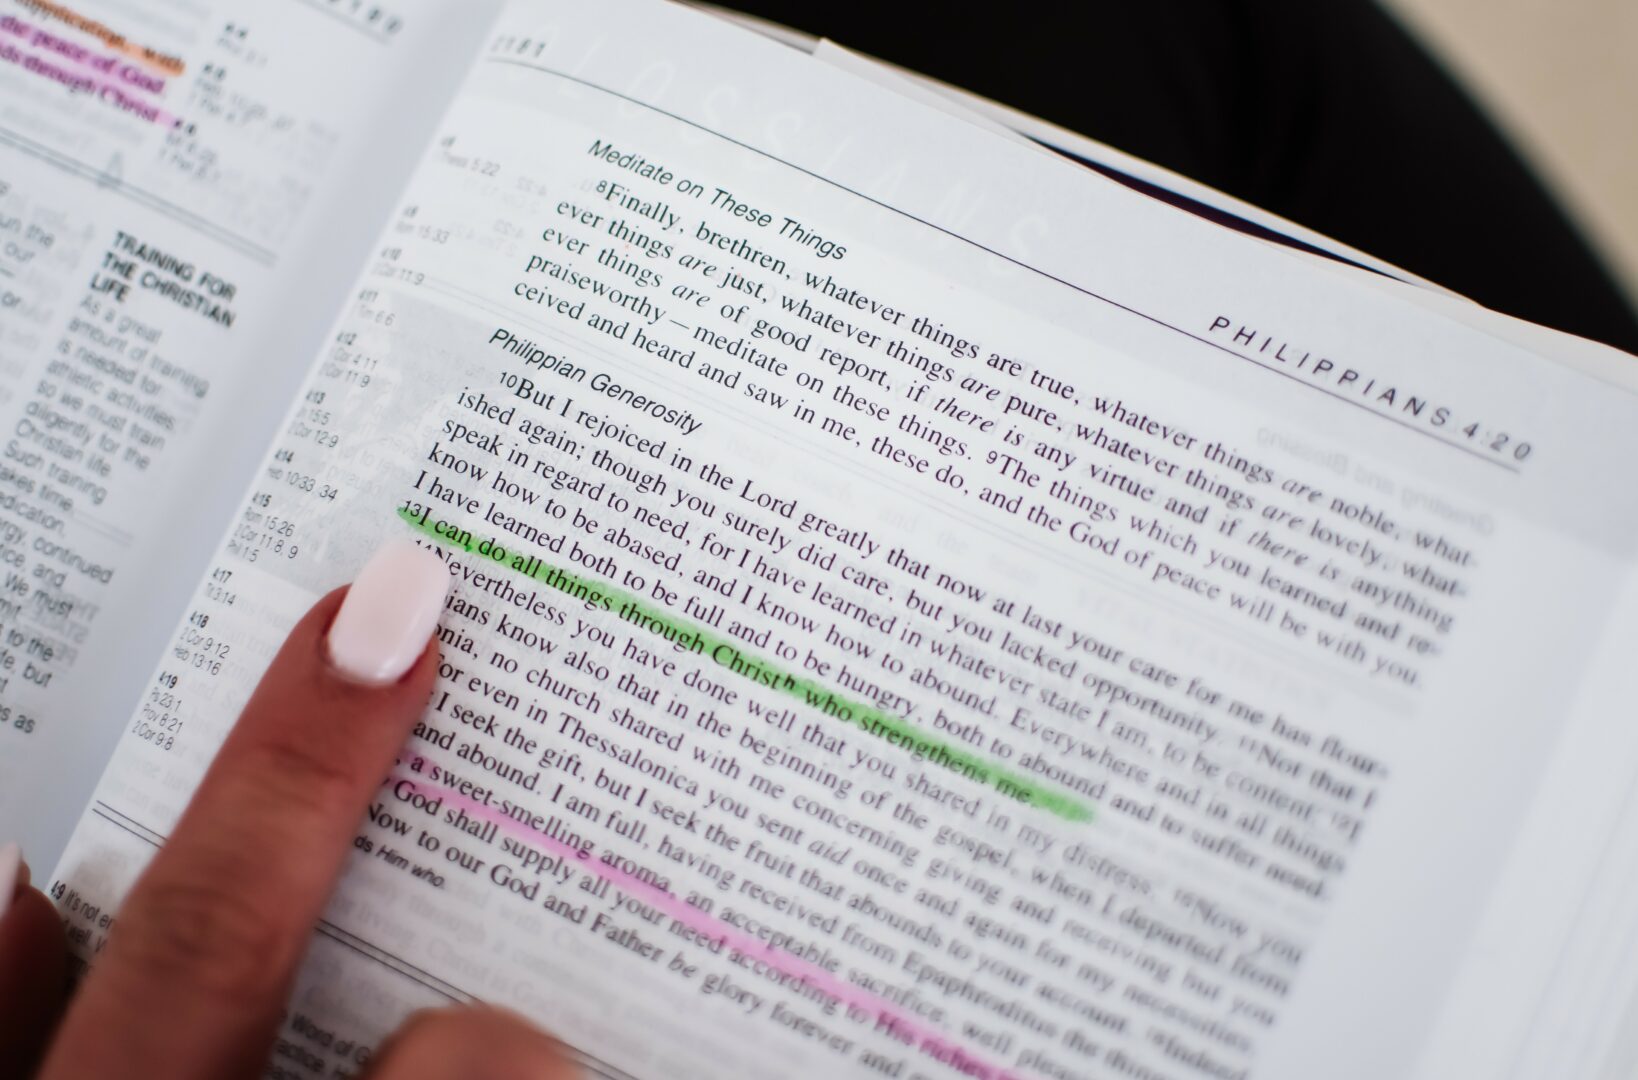 supplication, with
the peace of God
through Christ
TRAINING FOR
THE CHRISTIAN
LIFE
As a great
amount of training
is needed for
athletic activities
so we must train
diligently for the
Christian life
Such training
takes time
continued
and
We must
to the
but
as
2181
PHILIPPIANS 4:20
Meditate on These Things
8Finally, brethren, whatever things are true, whatever things are noble, what-
ever things are just, whatever things are pure, whatever things are lovely, what-
ever things are of good report, if there is any virtue and if there is anything
praiseworthy—meditate on these things. 9The things which you learned and re-
ceived and heard and saw in me, these do, and the God of peace will be with you.
Philippian Generosity
10But I rejoiced in the Lord greatly that now at last your care for me has flour-
ished again; though you surely did care, but you lacked opportunity. 11Not that I
speak in regard to need, for I have learned in whatever state I am, to be content. 12I
know how to be abased, and I know how to abound. Everywhere and in all things
I have learned both to be full and to be hungry, both to abound and to suffer need.
13I can do all things through Christh who strengthens me.
14Nevertheless you have done well that you shared in my distress. 15Now you
know also that in the beginning of the gospel, when I departed from
no church shared with me concerning giving and receiving but you
even in Thessalonica you sent aid once and again for my necessities.
I seek the gift, but I seek the fruit that abounds to your account.
and abound. I am full, having received from Epaphroditus the things
a sweet-smelling aroma, an acceptable sacrifice, well
God shall supply all your need according to His riches
Now to our God and Father be glory forever and
Him who
5:22
4:10
2 Cor 11:9
4:11
6:6
4:12
Cor 4:11
2 Cor 11:9
4:13
15:5
2 Cor 12:9
4:14
Heb 10:33, 34
4:15
Rom 15:26
2 Cor 11:8, 9
Phil 1:5
4:17
Tit 3:14
4:18
2 Cor 9:12
Heb 13:16
4:19
Ps 23:1
Prov 8:21
2 Cor 9:8
4:9 It's not
Word of